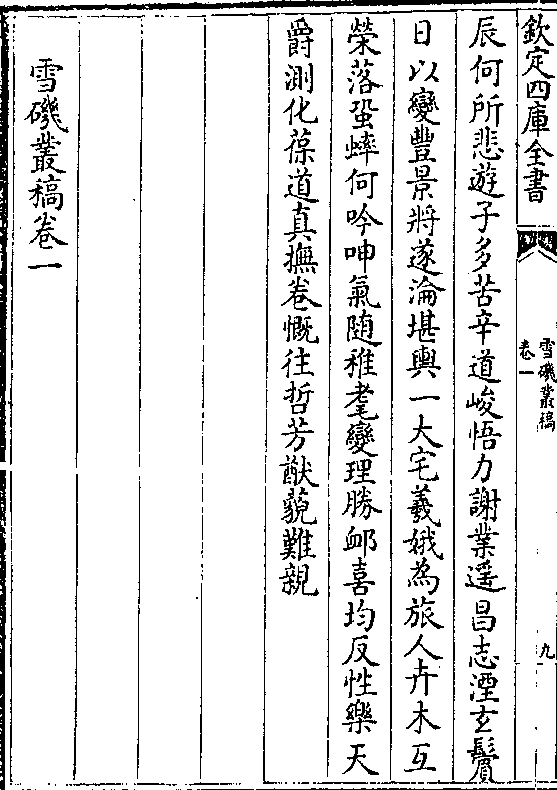 欽定四庫全書
雪磯叢稿
卷一
九
辰何所悲遊子多苦辛道峻悟力謝業遥昌志湮玄鬢
日以變豐景將遂淪堪輿一大宅羲娥為旅人卉木互
榮落蛩蟀何吟呻氣随稚耄變理勝䘏喜均反性樂天
爵測化葆道真撫卷慨往哲芳猷藐難親
雪磯叢稿卷一